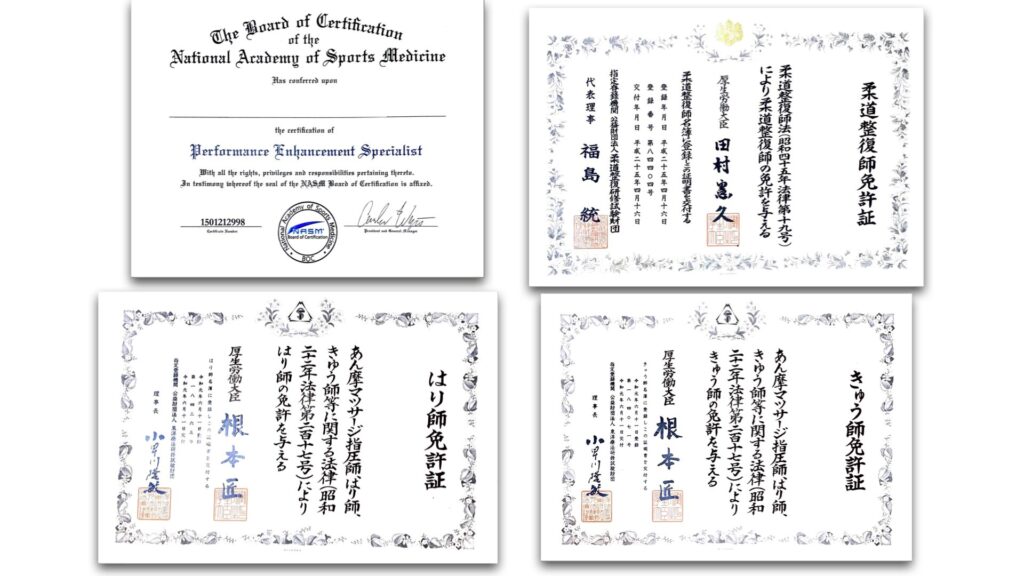 The Board of Certification
of the
National Academy of Sports Medicine
Has conferred upon
the certification of
Performance Enhancement Specialist
With all the rights, privileges and responsibilities pertaining thereto.
In testimony whereof the seal of the NASM Board of Certification is affixed.
1501212998
Certificate Number
National Academy of Sports Medicine
NASM
Board of Certification
BOC
President and General Manager
柔道整復師免許証
柔道整復師法(昭和四十五年法律第十九号)
により柔道整復師の免許を与える
厚生労働大臣 田村憲久
柔道整復師名簿に登録しこの証明書を交付する
登録年月日 平成二十五年四月十六日
登録番号 第八四〇四号
交付年月日 平成二十五年四月十六日
指定登録機関 公益財団法人柔道整復研修試験財団
代表理事 福島統
はり師免許証
あん摩マツサージ指圧師、はり師、
きゆう師等に関する法律(昭和
二十二年法律第二百十七号)により
はり師の免許を与える
厚生労働大臣 根本匠
はり師名簿に登録しこの証明書を交付する
令和元年六月十一日登録
令和元年六月十一日交付
指定登録機関 公益財団法人 東洋療法研修試験財団
理事長 小早川
きゆう師免許証
あん摩マツサージ指圧師、はり師、
きゆう師等に関する法律(昭和
二十二年法律第二百十七号)により
きゆう師の免許を与える
厚生労働大臣 根本匠
きゆう師名簿に登録しこの証明書を交付する
令和元年六月十一日登録
令和元年六月十一日交付
指定登録機関 公益財団法人 東洋療法研修試験財団
理事長 小早川